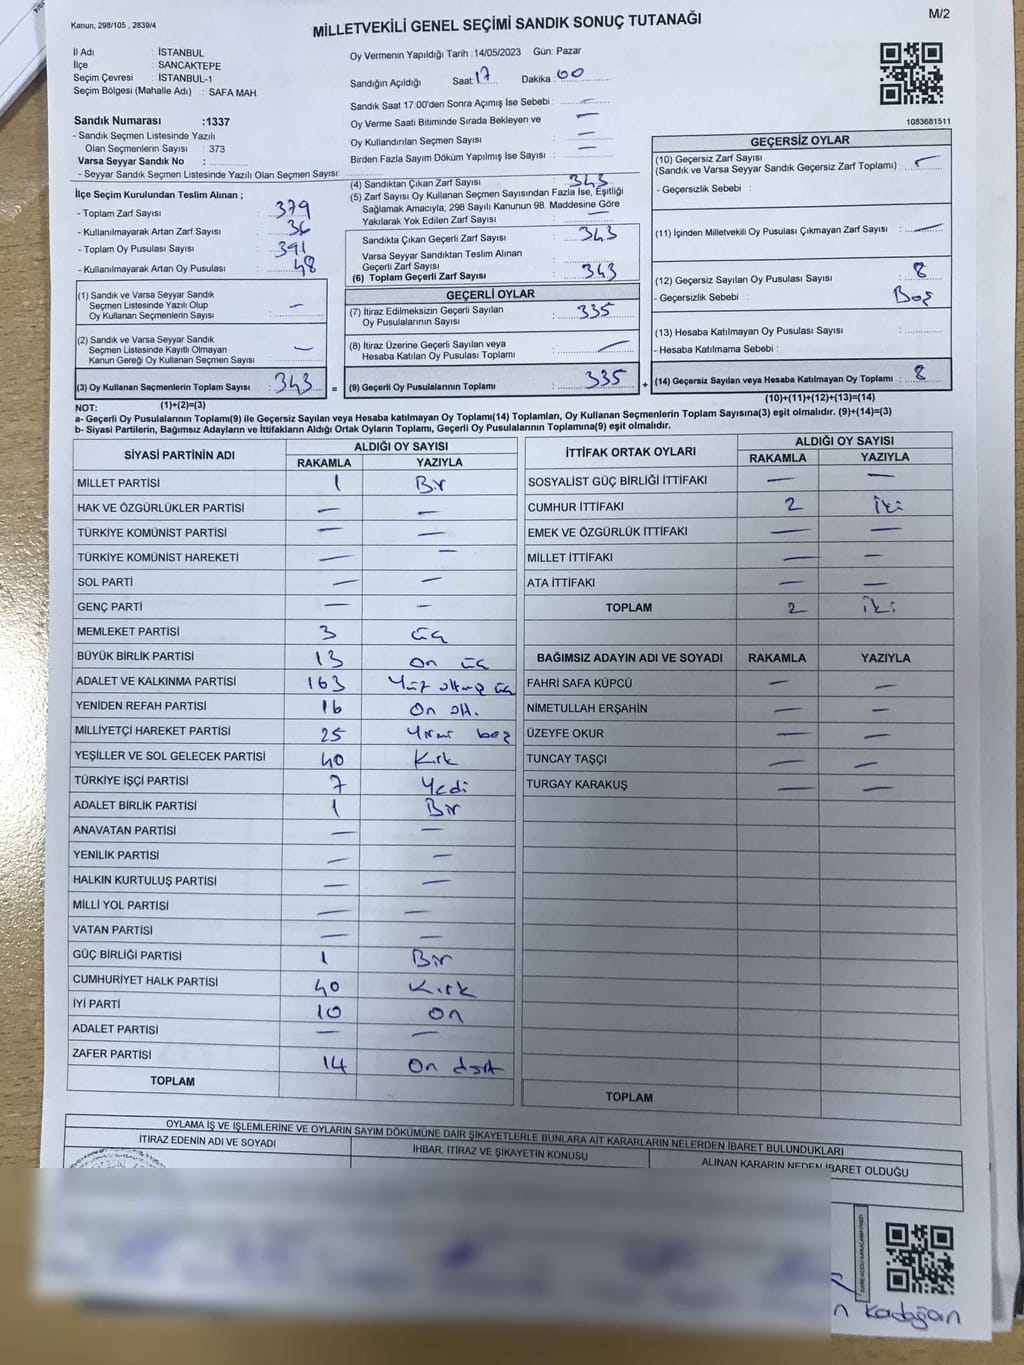 Kanun, 298/105 , 2839/4
MİLLETVEKİLİ GENEL SEÇİMİ SANDIK SONUÇ TUTANAĞI
M/2
İl Adı : İSTANBUL
İlçe : SANCAKTEPE
Seçim Çevresi : İSTANBUL-1
Seçim Bölgesi (Mahalle Adı) : SAFA MAH.
Sandık Numarası :1337
- Sandık Seçmen Listesinde Yazılı
Olan Seçmenlerin Sayısı : 373
Varsa Seyyar Sandık No :
- Seyyar Sandık Seçmen Listesinde Yazılı Olan Seçmen Sayısı:
Oy Vermenin Yapıldığı Tarih :14/05/2023 Gün: Pazar
Sandığın Açıldığı Saat: 17 Dakika : 00
Sandık Saat 17:00'den Sonra Açımış İse Sebebi : —
Oy Verme Saati Bitiminde Sırada Bekleyen ve —
Oy Kullandırılan Seçmen Sayısı : —
Birden Fazla Sayım Döküm Yapılmış İse Sayısı : —
1083681511
İlçe Seçim Kurulundan Teslim Alınan ;
- Toplam Zarf Sayısı : 379
- Kullanılmayarak Artan Zarf Sayısı : 36
- Toplam Oy Pusulası Sayısı : 391
- Kullanılmayarak Artan Oy Pusulası : 48
(1) Sandık ve Varsa Seyyar Sandık
Seçmen Listesinde Yazılı Olup
Oy Kullanan Seçmenlerin Sayısı : —
(2) Sandık ve Varsa Seyyar Sandık
Seçmen Listesinde Kayıtlı Olmayan
Kanun Gereği Oy Kullanan Seçmen Sayısı : —
(3) Oy Kullanan Seçmenlerin Toplam Sayısı : 343
(1)+(2)=(3)
(4) Sandıktan Çıkan Zarf Sayısı : 343
(5) Zarf Sayısı Oy Kullanan Seçmen Sayısından Fazla İse, Eşitliği
Sağlamak Amacıyla; 298 Sayılı Kanunun 98. Maddesine Göre
Yakılarak Yok Edilen Zarf Sayısı : —
Sandıkta Çıkan Geçerli Zarf Sayısı : 343
Varsa Seyyar Sandıktan Teslim Alınan
Geçerli Zarf Sayısı :
(6) Toplam Geçerli Zarf Sayısı : 343
GEÇERLİ OYLAR
(7) İtiraz Edilmeksizin Geçerli Sayılan
Oy Pusulalarının Sayısı : 335
(8) İtiraz Üzerine Geçerli Sayılan veya
Hesaba Katılan Oy Pusulası Toplamı : —
= (9) Geçerli Oy Pusulalarının Toplamı : 335
GEÇERSİZ OYLAR
(10) Geçersiz Zarf Sayısı
(Sandık ve Varsa Seyyar Sandık Geçersiz Zarf Toplamı) : —
- Geçersizlik Sebebi :
(11) İçinden Milletvekili Oy Pusulası Çıkmayan Zarf Sayısı : —
(12) Geçersiz Sayılan Oy Pusulası Sayısı : 8
- Geçersizlik Sebebi : Boş
(13) Hesaba Katılmayan Oy Pusulası Sayısı :
- Hesaba Katılmama Sebebi :
+ (14) Geçersiz Sayılan veya Hesaba Katılmayan Oy Toplamı : 8
(10)+(11)+(12)+(13)=(14)
NOT:
a- Geçerli Oy Pusulalarının Toplamı(9) ile Geçersiz Sayılan veya Hesaba katılmayan Oy Toplamı(14) Toplamları, Oy Kullanan Seçmenlerin Toplam Sayısına(3) eşit olmalıdır. (9)+(14)=(3)
b- Siyasi Partilerin, Bağımsız Adayların ve İttifakların Aldığı Ortak Oyların Toplamı, Geçerli Oy Pusulalarının Toplamına(9) eşit olmalıdır.
SİYASİ PARTİNİN ADI ALDIĞI OY SAYISI
RAKAMLA YAZIYLA
MİLLET PARTİSİ 1 Bir
HAK VE ÖZGÜRLÜKLER PARTİSİ — —
TÜRKİYE KOMÜNİST PARTİSİ — —
TÜRKİYE KOMÜNİST HAREKETİ — —
SOL PARTİ — —
GENÇ PARTİ — —
MEMLEKET PARTİSİ 3 üç
BÜYÜK BİRLİK PARTİSİ 13 On üç
ADALET VE KALKINMA PARTİSİ 163 Yüz altmış üç
YENİDEN REFAH PARTİSİ 16 On altı
MİLLİYETÇİ HAREKET PARTİSİ 25 Yirmi beş
YEŞİLLER VE SOL GELECEK PARTİSİ 40 Kırk
TÜRKİYE İŞÇİ PARTİSİ 7 Yedi
ADALET BİRLİK PARTİSİ 1 Bir
ANAVATAN PARTİSİ — —
YENİLİK PARTİSİ — —
HALKIN KURTULUŞ PARTİSİ — —
MİLLİ YOL PARTİSİ — —
VATAN PARTİSİ — —
GÜÇ BİRLİĞİ PARTİSİ 1 Bir
CUMHURİYET HALK PARTİSİ 40 Kırk
İYİ PARTİ 10 On
ADALET PARTİSİ — —
ZAFER PARTİSİ 14 On dört
TOPLAM
İTTİFAK ORTAK OYLARI ALDIĞI OY SAYISI
RAKAMLA YAZIYLA
SOSYALİST GÜÇ BİRLİĞİ İTTİFAKI — —
CUMHUR İTTİFAKI 2 İki
EMEK VE ÖZGÜRLÜK İTTİFAKI — —
MİLLET İTTİFAKI — —
ATA İTTİFAKI — —
TOPLAM 2 İki
BAĞIMSIZ ADAYIN ADI VE SOYADI RAKAMLA YAZIYLA
FAHRİ SAFA KÜPCÜ — —
NİMETULLAH ERŞAHİN — —
ÜZEYFE OKUR — —
TUNCAY TAŞÇI — —
TURGAY KARAKUŞ — —
TOPLAM
OYLAMA İŞ VE İŞLEMLERİNE VE OYLARIN SAYIM DÖKÜMÜNE DAİR ŞİKAYETLERLE BUNLARA AİT KARARLARIN NELERDEN İBARET BULUNDUKLARI
İTİRAZ EDENİN ADI VE SOYADI İHBAR, İTİRAZ VE ŞİKAYETİN KONUSU ALINAN KARARIN NEDEN İBARET OLDUĞU